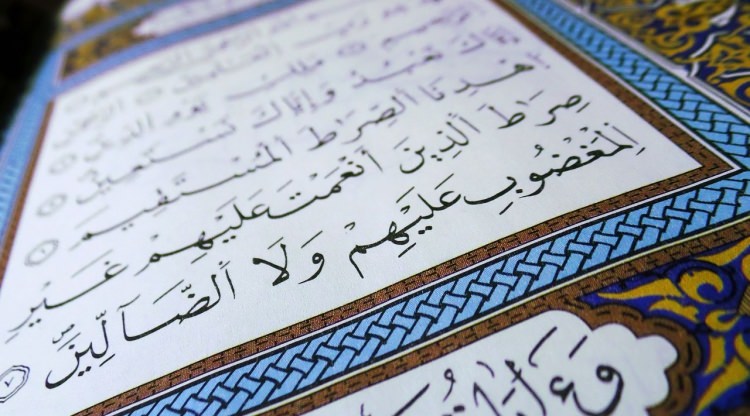 ٱلرَّحِيمِ ٣ مَٰلِكِ يَوْمِ ٱلدِّينِ ٤
إِيَّاكَ نَعْبُدُ وَإِيَّاكَ نَسْتَعِينُ ٥
ٱهْدِنَا ٱلصِّرَٰطَ ٱلْمُسْتَقِيمَ ٦
صِرَٰطَ ٱلَّذِينَ أَنْعَمْتَ عَلَيْهِمْ غَيْرِ
ٱلْمَغْضُوبِ عَلَيْهِمْ وَلَا ٱلضَّآلِّينَ ٧